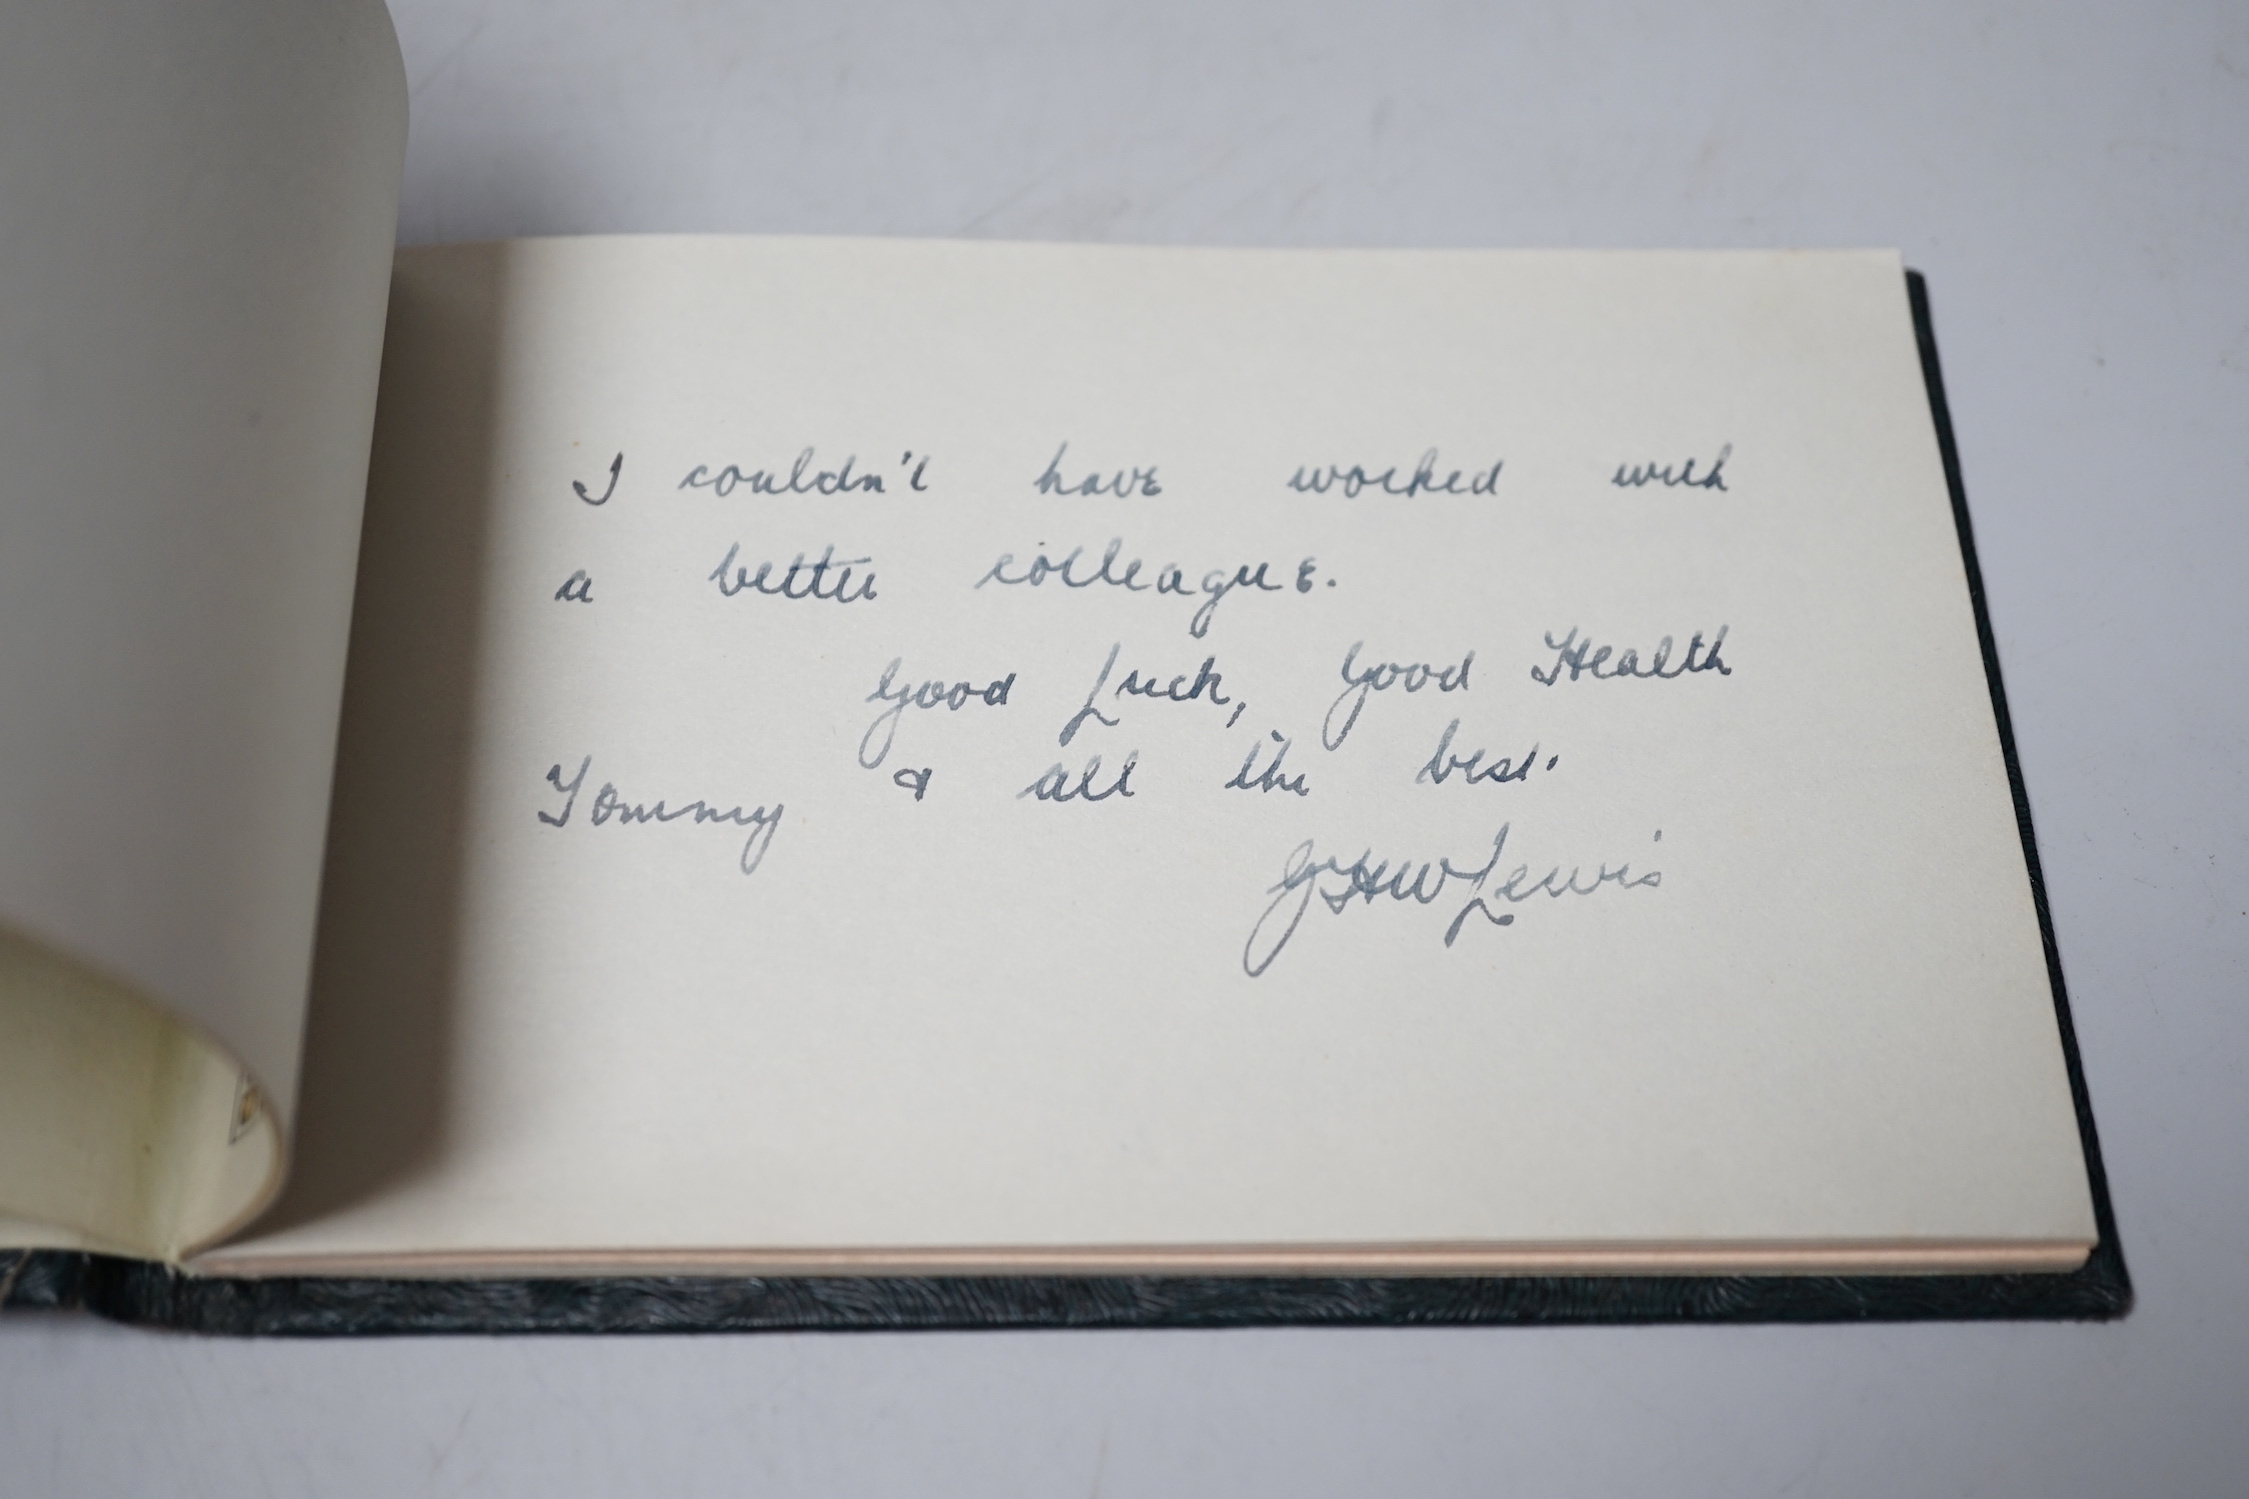 I couldn't have worked with
a better colleague.
Good Luck, Good Health
Tommy & all the best.
GHW Lewis